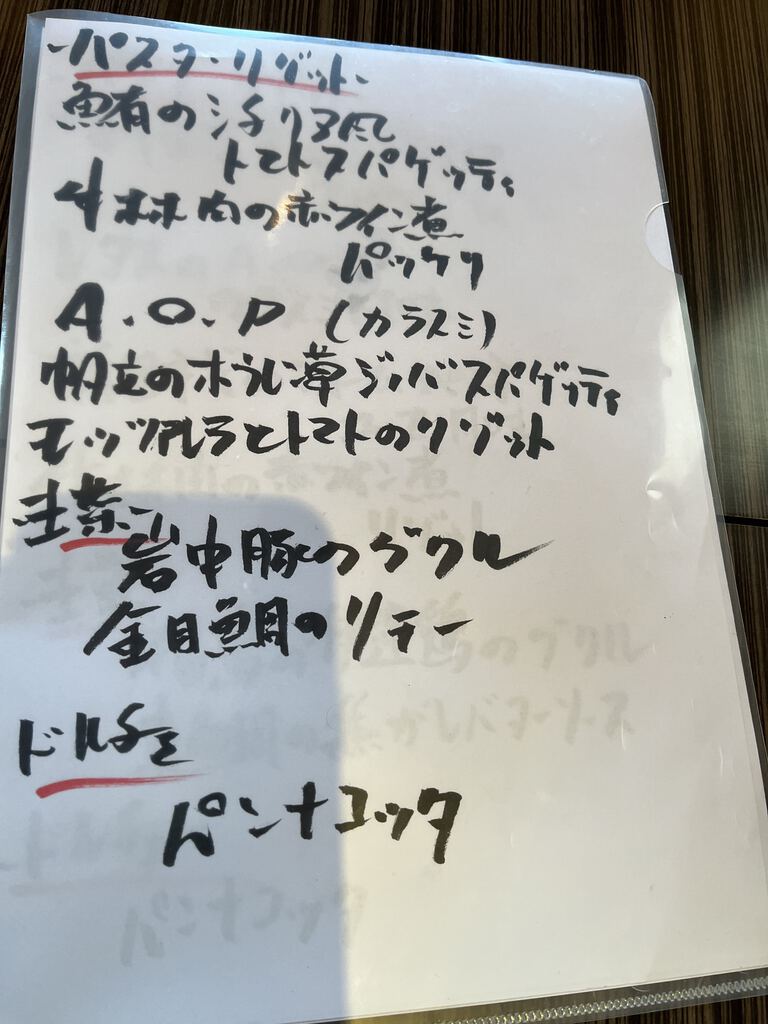 -パスタ・リゾット-
鮪のシチリア風
トマトスパゲッティ
牛ホホ肉の赤ワイン煮
パッケリ
A.O.P (カラスミ)
帆立のホウレン草ジェノバスパゲッティ
モッツァレラとトマトのリゾット
主菜-
岩中豚のグリル
金目鯛のソテー
ドルチェ
パンナコッタ